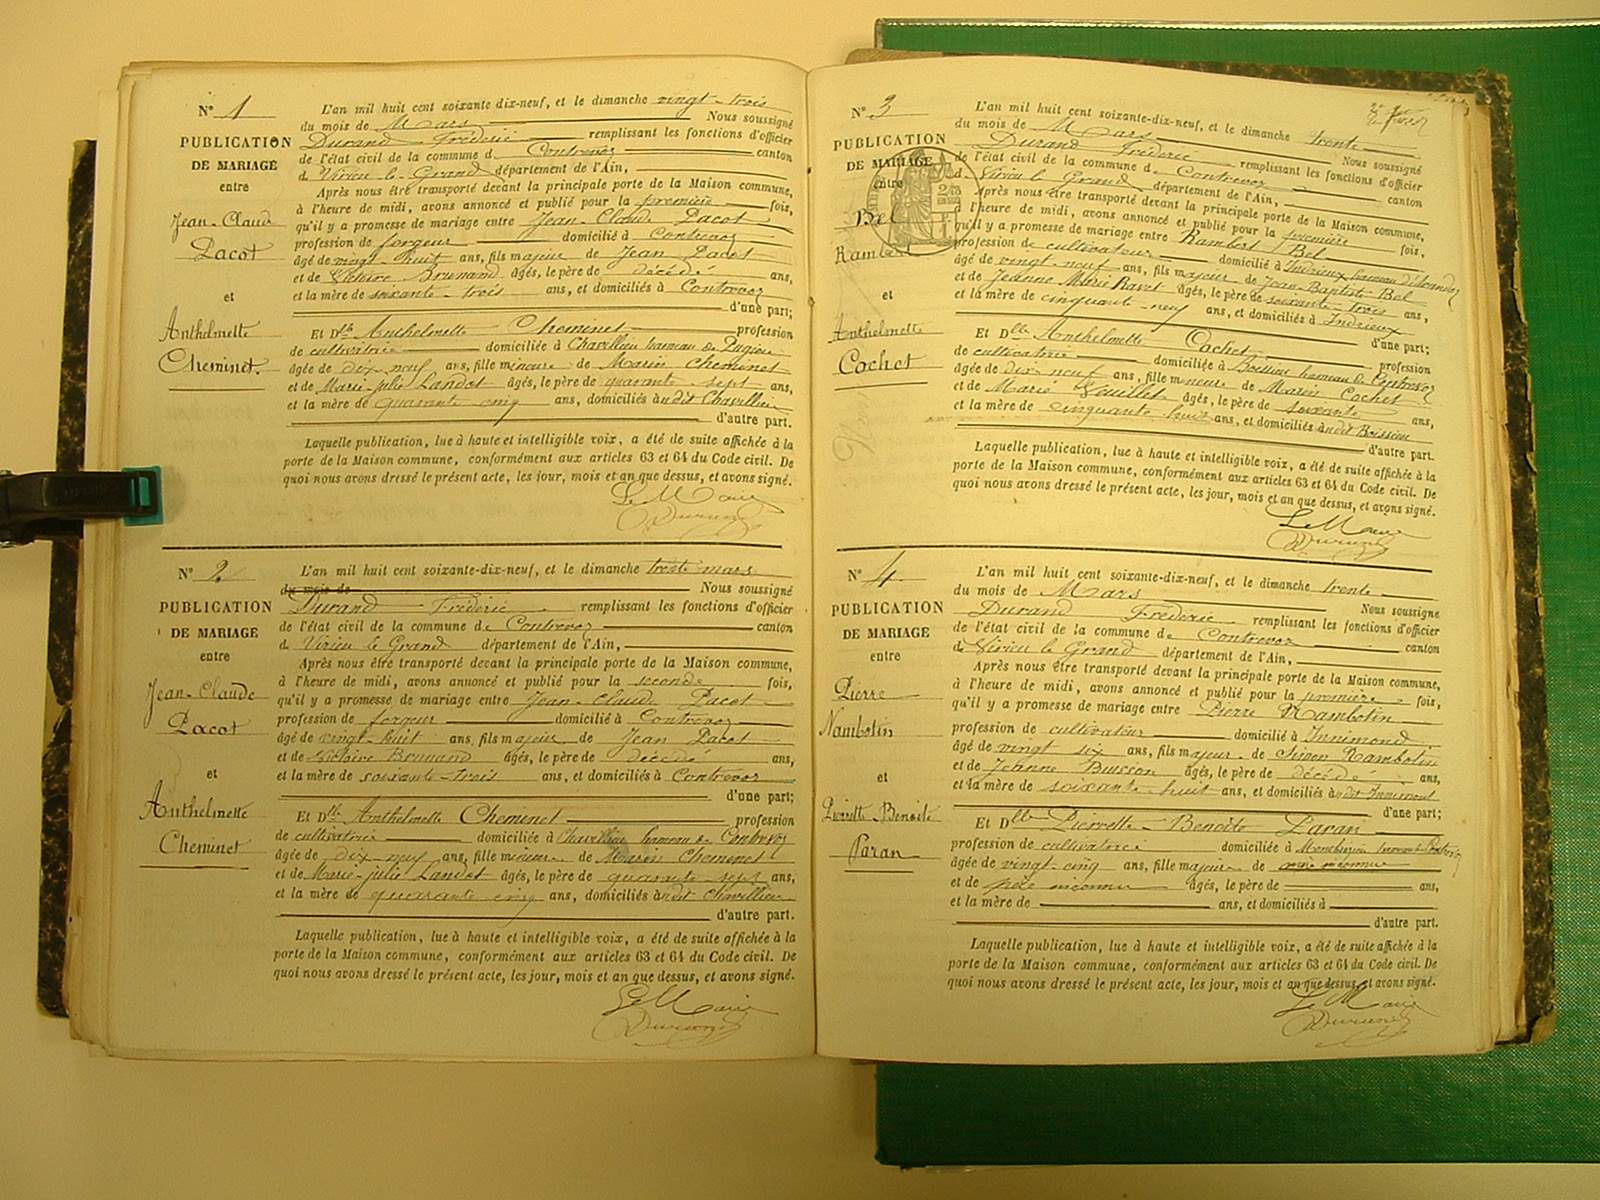 N° 1
PUBLICATION
DE MARIAGE
entre
Jean-Claude
Pacot
et
Anthelmette
Cheminet.
L'an mil huit cent soixante dix-neuf, et le dimanche vingt-trois
du mois de Mars Nous soussigné
Durand Fréderic remplissant les fonctions d'officier
de l'état civil de la commune de Contrevoz canton
de Virieu-le-Grand département de l'Ain,
Après nous être transporté devant la principale porte de la Maison commune,
à l'heure de midi, avons annoncé et publié pour la première fois,
qu'il y a promesse de mariage entre Jean-Claude Pacot
profession de forgeur domicilié à Contrevoz
âgé de vingt-huit ans, fils majeur de Jean Pacot
et de Victoire Brunand âgés, le père de décédé ans,
et la mère de soixante-trois ans, et domiciliés à Contrevoz
d'une part;
Et Dlle Anthelmette Cheminet profession
de cultivatrice domiciliée à Chavillieu hameau de Pugieu
âgée de dix neuf ans, fille mineure de Marin Cheminet
et de Marie-julie Landot âgés, le père de quarante-sept ans,
et la mère de quarante cinq ans, domiciliés audit Chavillieu
d'autre part.
Laquelle publication, lue à haute et intelligible voix, a été de suite affichée à la
porte de la Maison commune, conformément aux articles 63 et 64 du Code civil. De
quoi nous avons dressé le présent acte, les jour, mois et an que dessus, et avons signé.
Le Maire
Durand
N° 2
PUBLICATION
DE MARIAGE
entre
Jean-Claude
Pacot
et
Anthelmette
Cheminet
L'an mil huit cent soixante-dix-neuf, et le dimanche trente mars
du mois de Nous soussigné
Durand Fréderic remplissant les fonctions d'officier
de l'état civil de la commune de Contrevoz canton
de Virieu le Grand département de l'Ain,
Après nous être transporté devant la principale porte de la Maison commune,
à l'heure de midi, avons annoncé et publié pour la seconde fois,
qu'il y a promesse de mariage entre Jean-Claude Pacot
profession de forgeur domicilié à Contrevoz
âgé de vingt-huit ans, fils majeur de Jean Pacot
et de Victoire Brunand âgés, le père de décédé ans,
et la mère de soixante-trois ans, et domiciliés à Contrevoz
d'une part;
Et Dlle Anthelmette Cheminet profession
de cultivatrice domiciliée à Chavillieu hameau de Contrevoz
âgée de dix neuf ans, fille mineure de Marin Cheminet
et de Marie-julie Landot âgés, le père de quarante-sept ans,
et la mère de quarante cinq ans, domiciliés audit Chavillieu
d'autre part.
Laquelle publication, lue à haute et intelligible voix, a été de suite affichée à la
porte de la Maison commune, conformément aux articles 63 et 64 du Code civil. De
quoi nous avons dressé le présent acte, les jour, mois et an que dessus, et avons signé.
Le Maire
Durand
N° 3
PUBLICATION
DE MARIAGE
entre
Bel
Rambert
et
Anthelmette
Cochet
L'an mil huit cent soixante-dix-neuf, et le dimanche trente
du mois de Mars Nous soussigné
Durand Fréderic remplissant les fonctions d'officier
de l'état civil de la commune de Contrevoz canton
de Virieu le Grand département de l'Ain,
Après nous être transporté devant la principale porte de la Maison commune,
à l'heure de midi, avons annoncé et publié pour la première fois,
qu'il y a promesse de mariage entre Rambert Bel
profession de cultivateur domicilié à Indrieux hameau
âgé de vingt-neuf ans, fils majeur de Jean-Baptiste Bel
et de Jeanne Marie Ravet âgés, le père de soixante-trois ans,
et la mère de cinquante-neuf ans, et domiciliés à Indrieux
d'une part;
Et Dlle Anthelmette Cochet profession
de cultivatrice domiciliée à Boissieu hameau de Contrevoz
âgée de dix neuf ans, fille mineure de Marin Cochet
et de Marie Veuillet âgés, le père de soixante ans,
et la mère de cinquante huit ans, et domiciliés audit Boissieu
d'autre part.
Laquelle publication, lue à haute et intelligible voix, a été de suite affichée à la
porte de la Maison commune, conformément aux articles 63 et 64 du Code civil. De
quoi nous avons dressé le présent acte, les jour, mois et an que dessus, et avons signé.
Le Maire
Durand
N° 4
PUBLICATION
DE MARIAGE
entre
Pierre
Nambotin
et
Pierrette-Benoite
Paran
L'an mil huit cent soixante-dix-neuf, et le dimanche trente
du mois de Mars Nous soussigné
Durand Fréderic remplissant les fonctions d'officier
de l'état civil de la commune de Contrevoz canton
de Virieu le Grand département de l'Ain,
Après nous être transporté devant la principale porte de la Maison commune,
à l'heure de midi, avons annoncé et publié pour la première fois,
qu'il y a promesse de mariage entre Pierre Nambotin
profession de cultivateur domicilié à Innimond
âgé de vingt six ans, fils majeur de Simon Nambotin
et de Jeanne Buisson âgés, le père de décédé ans,
et la mère de soixante-huit ans, et domiciliés à dit Innimont
d'une part;
Et Dlle Pierrette-Benoite Paran
profession de cultivatrice domiciliée à hameau de Contrevoz
âgée de vingt-cinq ans, fille majeure de
et de père inconnu âgés, le père de ans,
et la mère de ans, et domiciliés à
d'autre part.
Laquelle publication, lue à haute et intelligible voix, a été de suite affichée à la
porte de la Maison commune, conformément aux articles 63 et 64 du Code civil. De
quoi nous avons dressé le présent acte, les jour, mois et an que dessus, et avons signé.
Le Maire
Durand